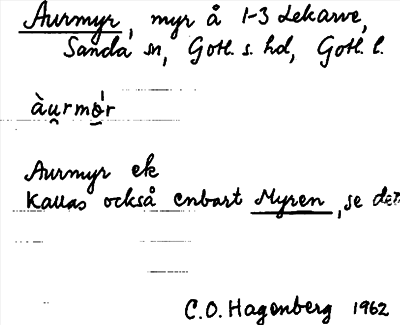 Aurmyr, myr å 1-3 Lekarve,
Sanda sn, Gotl. s. hd, Gotl. l.
àu̯rmø̱ᶦr
Aurmyr ek
Kallas också enbart Myren, se det
C.O. Hagenberg 1962